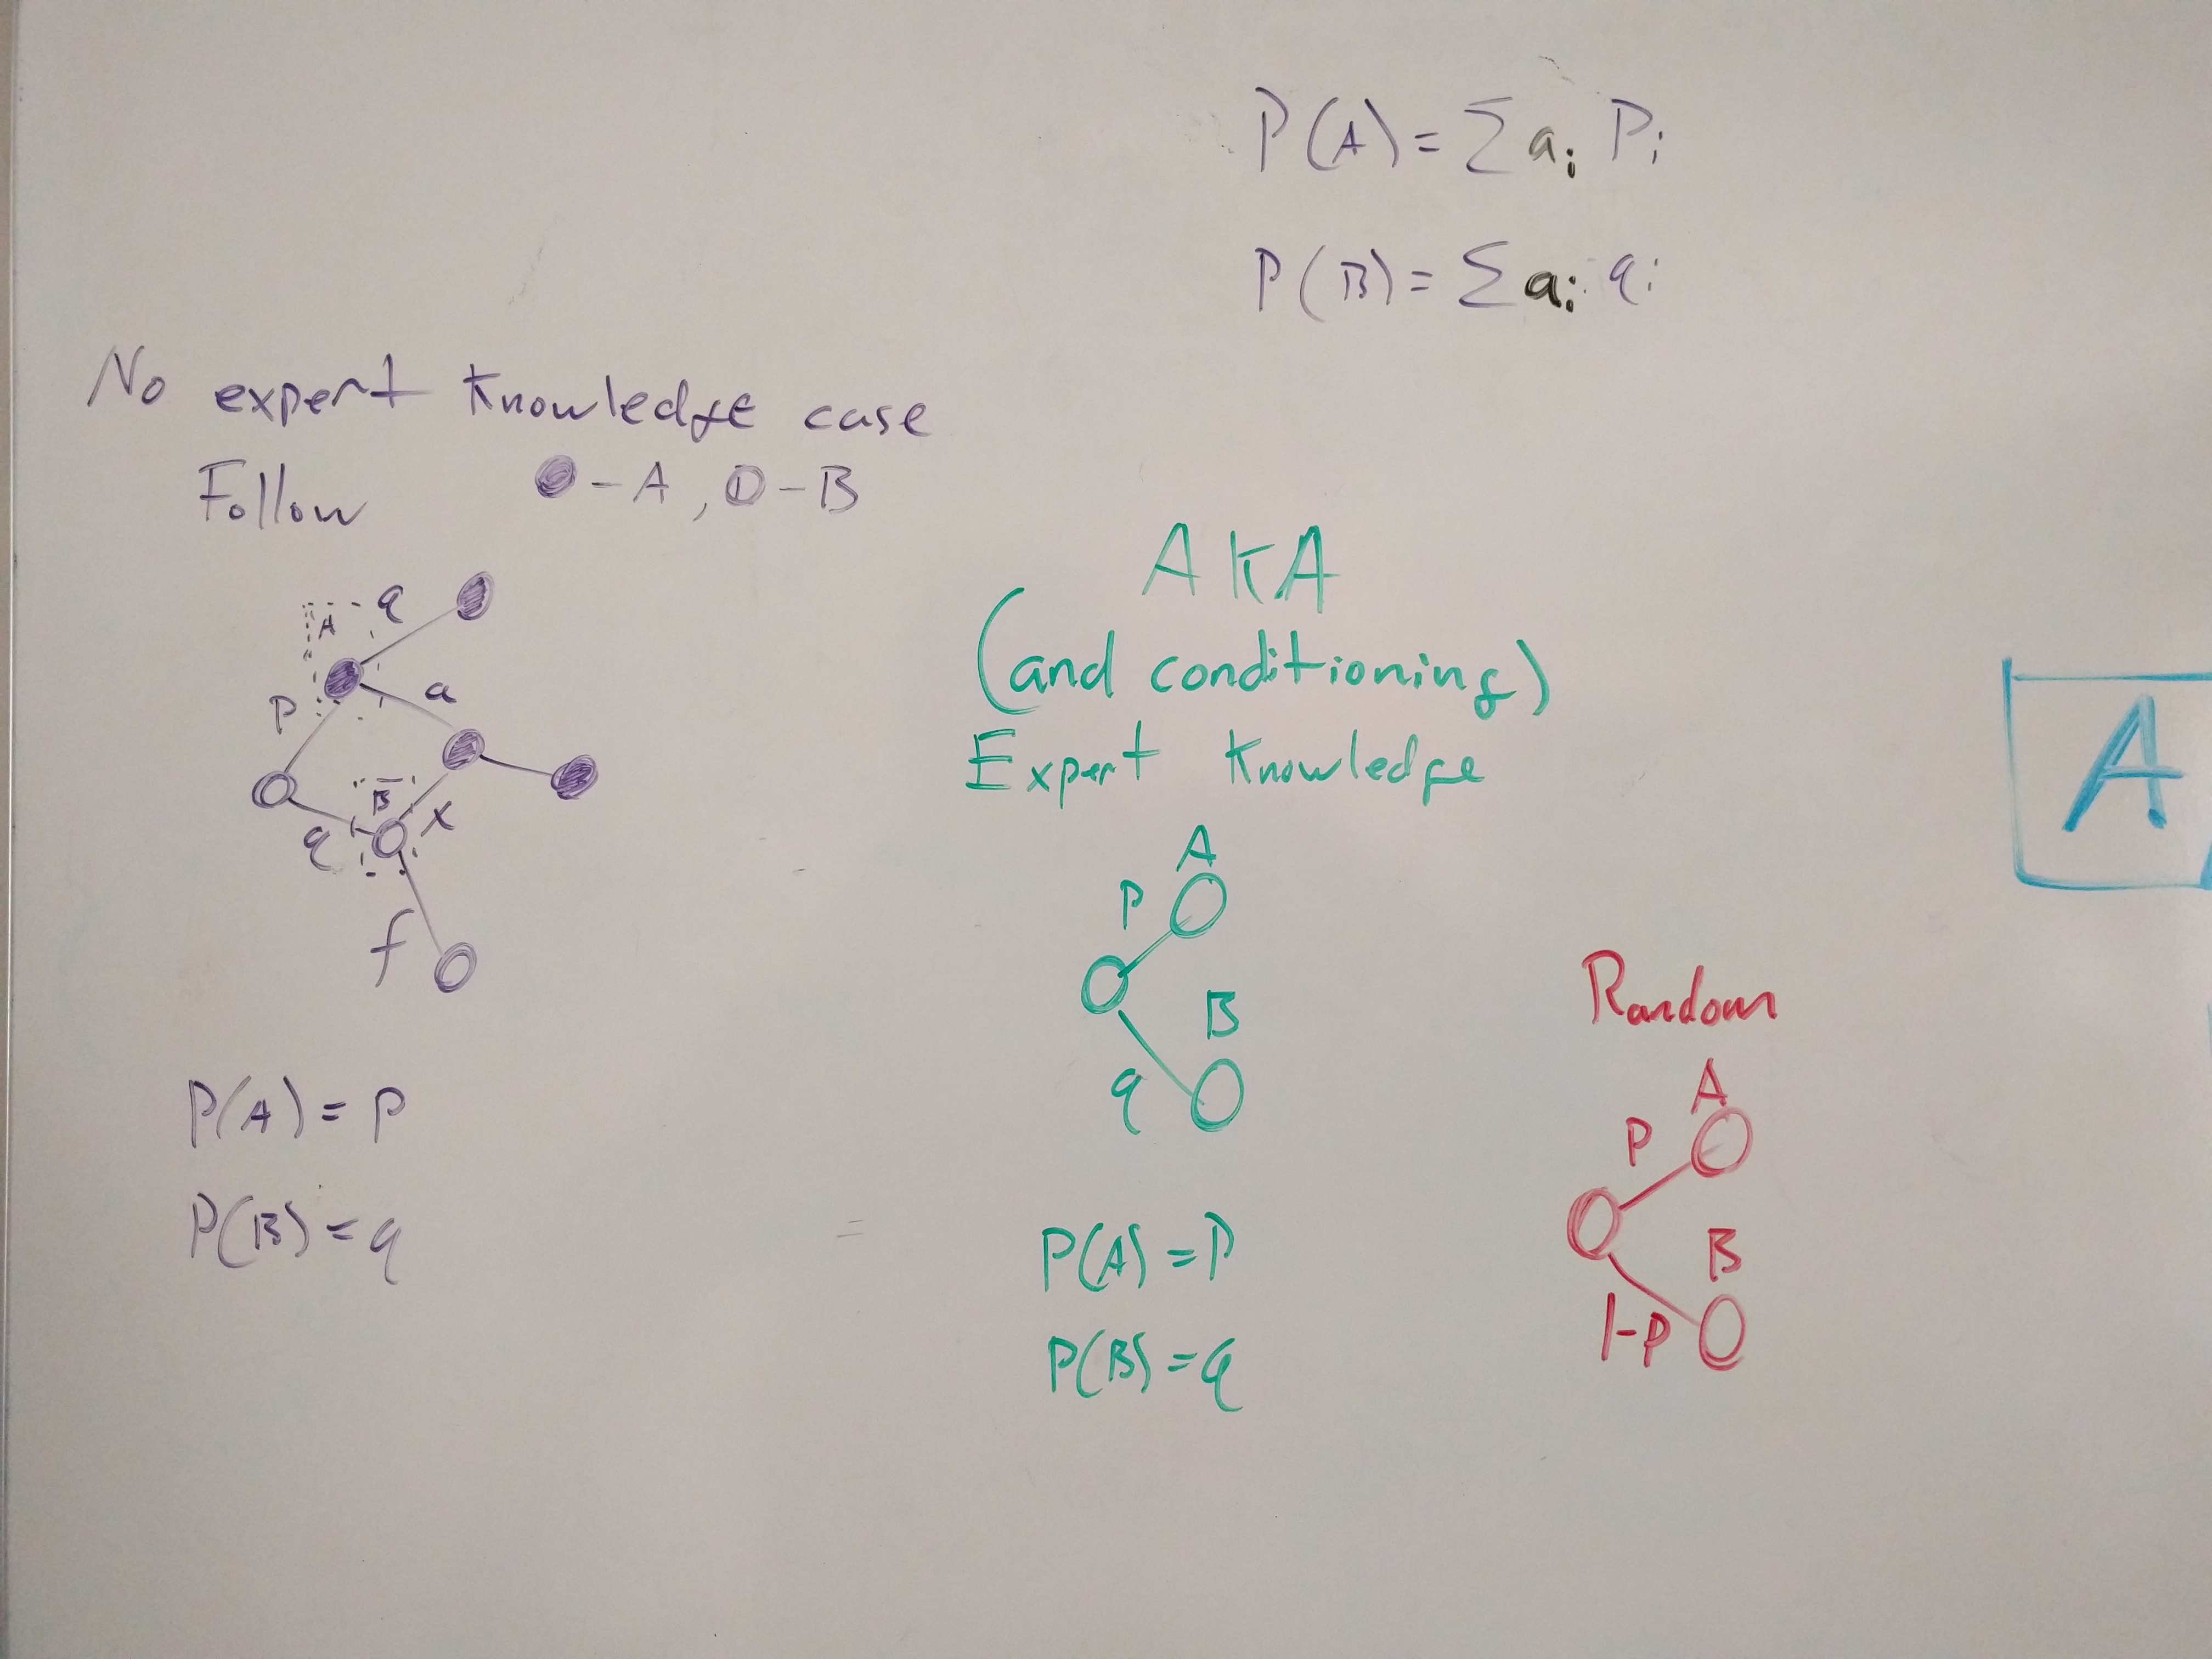 P(A) = Σ aᵢ Pᵢ
P(B) = Σ aᵢ qᵢ
No expert knowledge case
Follow ● - A, O - B
q
A
a
P
B
x
q
f
P(A) = P
P(B) = q
=
AKA
(and conditioning)
Expert knowledge
A
P
B
q
P(A) = P
P(B) = q
Random
A
P
B
1-P
A